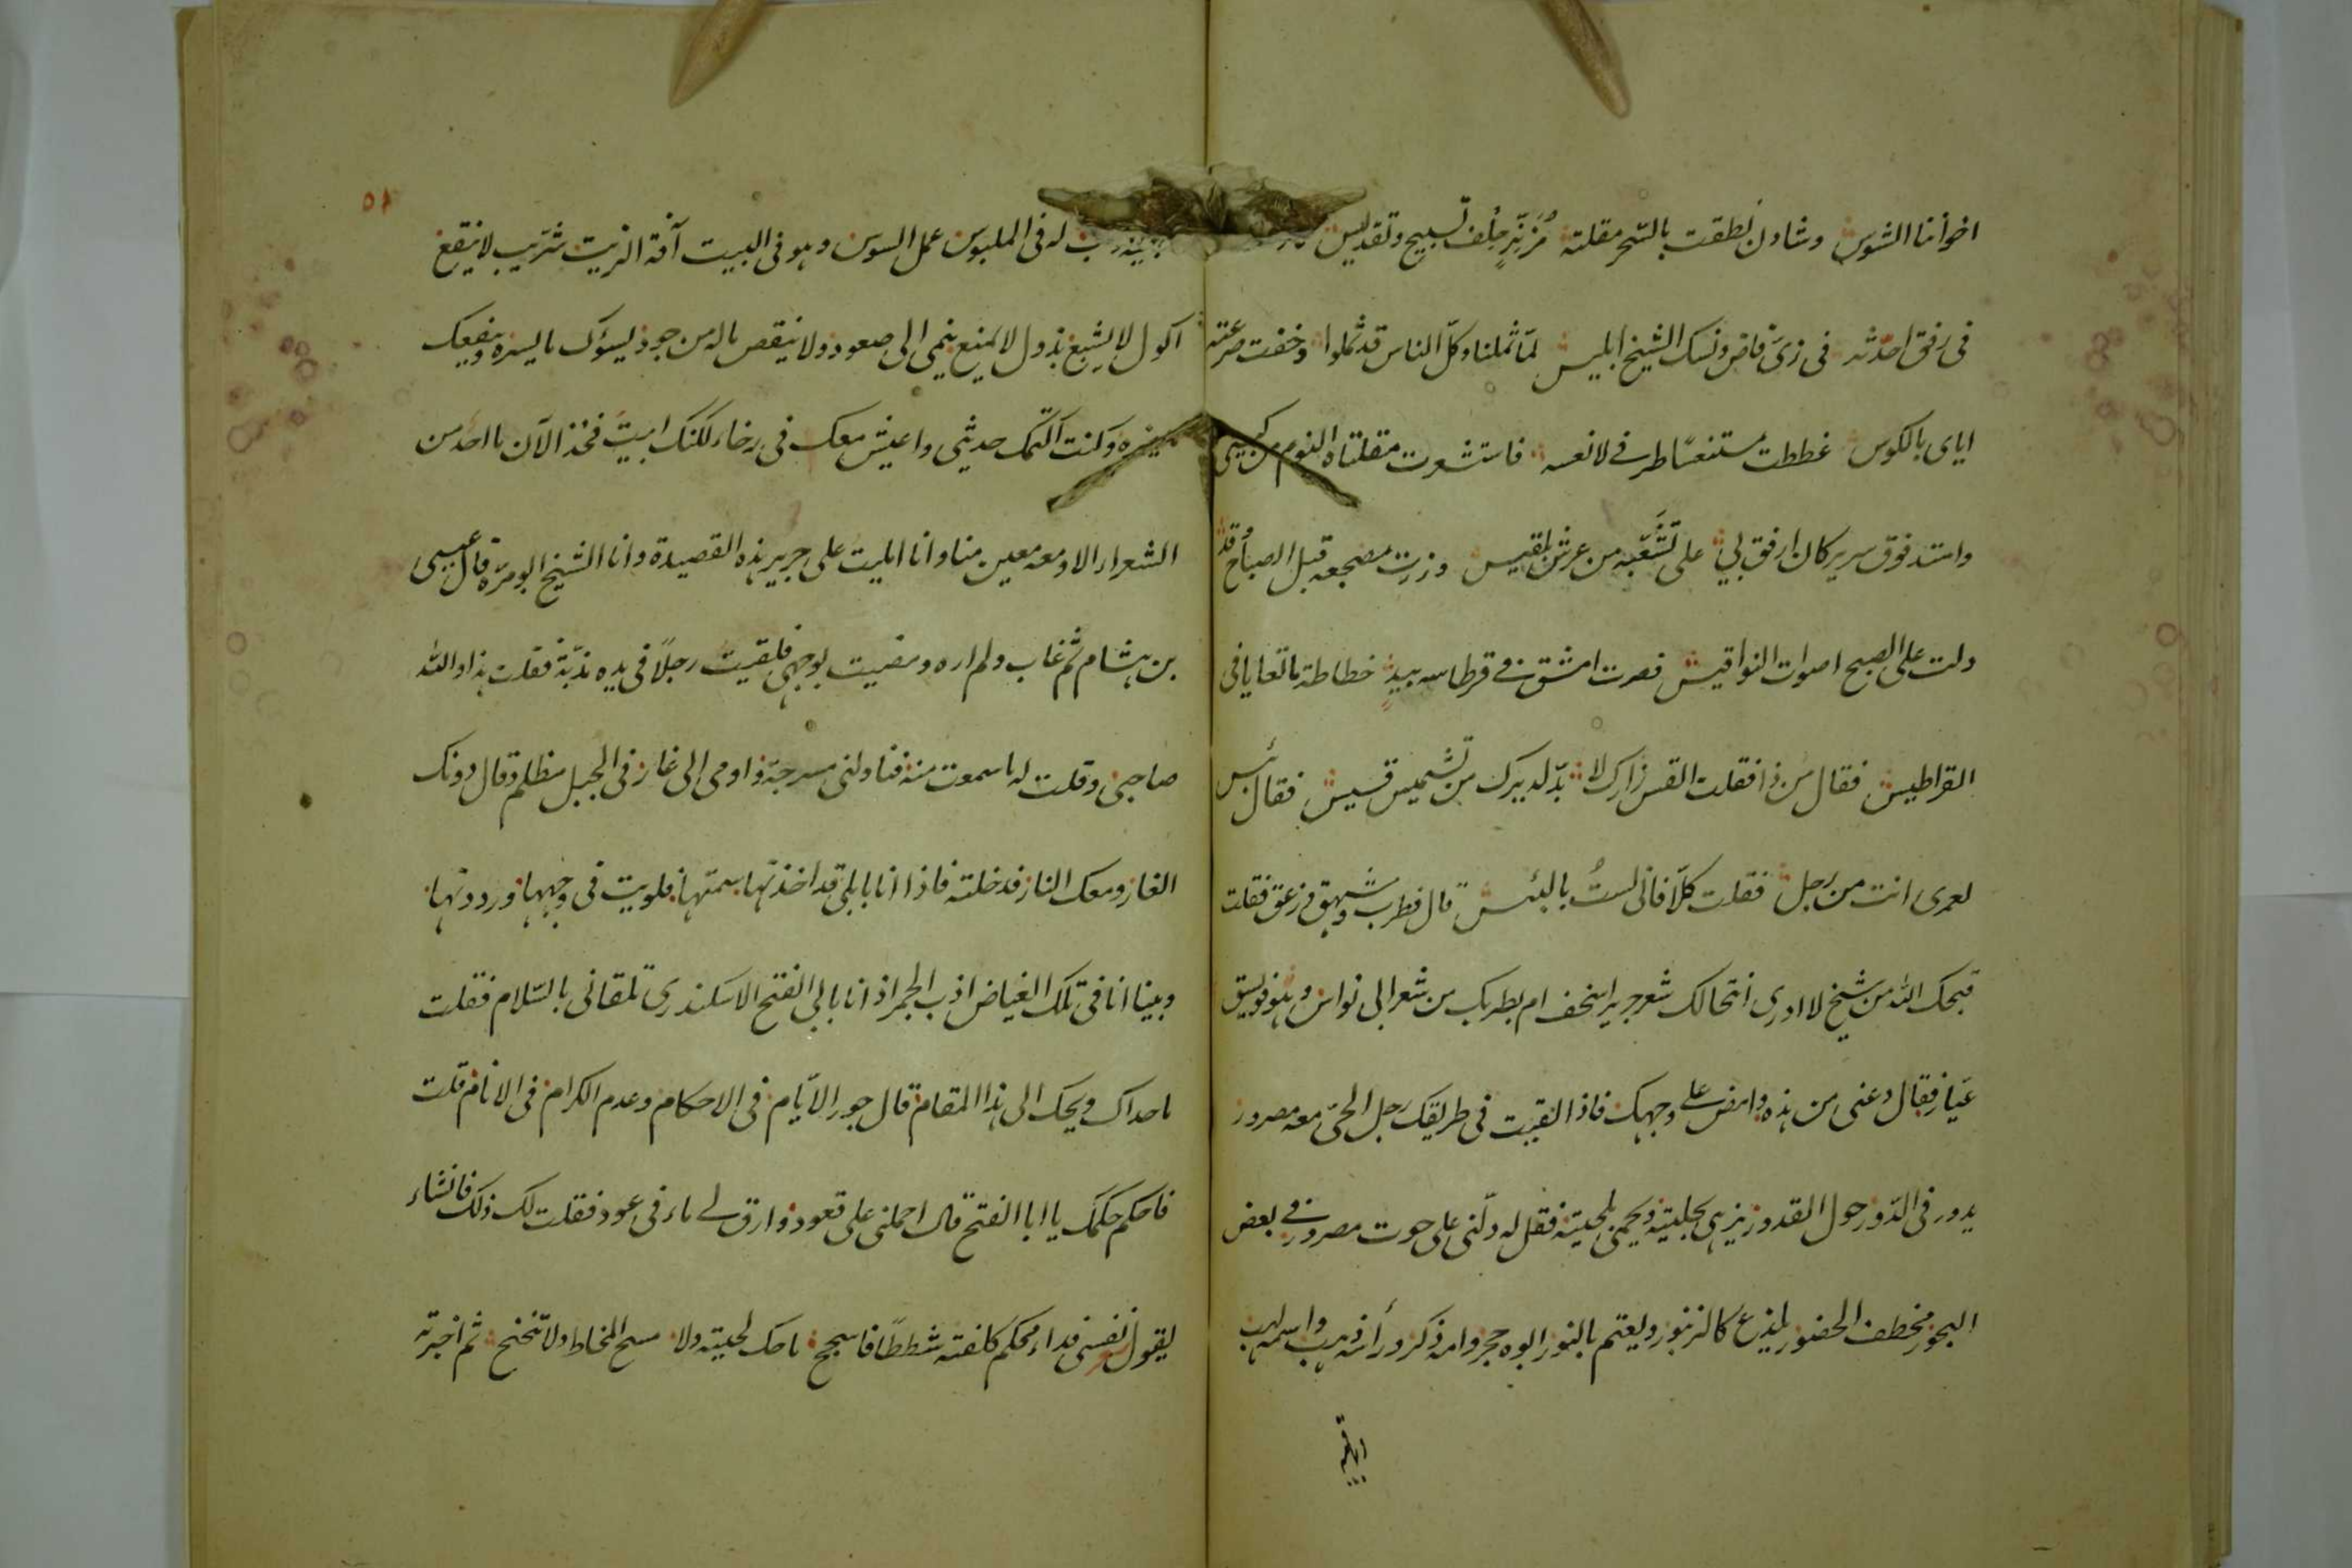 اخواننا الشوس وشادن نطقت بالسّحر مقلته مُزَنَّرٍ حِلف تسبيح وتقديس
فى رفق احدثه فى زىّ قاض ونسك الشيخ ابليس لمّا ثملنا وكلّ الناس قد ثملوا وخفت صرعته
اياى بالكوس غططت مستنعسًا طرفى لانعسه فاستشعرت مقلتاه النوم من كيسى
وامتد فوق سرير كان ارفق بى على تشعّبه من عرش بلقيس وزرت مضجعه قبل الصباح وقد
دلت على الصبح اصوات النواقيس فصرت امشق فى قرطاسه بيدٍ خطاطة بالتعايا فى
القراطيس فقال من ذا فقلت القس زارك لا بدّ لديرك من تشميس قسيس فقال بئس
لعمرى انت من رجل فقلت كلّا فانى لستُ بالبئس قال فطرب وشهق وزعق فقلت
قبحك الله من شيخ لا ادرى أنتحالك شعر جرير اسخف ام بطربك من شعر ابى نواس وهو فويسق
عيّار فقال دعنى من هذه وامض على وجهك فاذا لقيت فى طريقك رجل الحىّ معه مصرور
يدور فى الدّور حول القدور يزهى بحليته ويحمى بلحيته فقل له دلّنى على حوت مصرور فى بعض
البحور مخطف الحضور يلذع كالزنبور ويعتم بالنور ابوه حجر وامه ذكر ورأسه ذهب واسمه لهب
له فى الملبوس عمل السوس وهو فى البيت آفة الزيت شرّيب لا ينقع
اكول لا يشبع بذول لا يمنع ينمى الى صعود ولا ينقص ماله من جود يسوءك ما يسره وينفعك
وكنت اكتمك حديثى واعيش معك فى رخاء لكنك ابيت فخذ الآن ما احد من
الشعراء الا ومعه معين منا وانا امليت على جرير هذه القصيدة وانا الشيخ ابو مرّة قال عيسى
بن هشام ثم غاب ولم اره ومضيت لوجهى فلقيت رجلًا فى يده مذبّة فقلت هذا والله
صاحبى وقلت له ما سمعت منه فناولنى مسرجة واومى الى غار فى الجبل مظلم وقال دونك
الغار ومعك النار فدخلته فاذا انا بابلى قد اخذت سمتها فلويت فى وجهها ورددتها
وبينا انا فى تلك الغياض اذب الخمر اذ انا بابى الفتح الاسكندرى تلقانى بالسّلام فقلت
ما حداك ويحك الى هذا المقام قال جور الايّام فى الاحكام وعدم الكرام فى الانام قلت
فاحكم حكمك يا ابا الفتح قال احملنى على قعود وارق لى ماء فى عود فقلت لك ذلك فانشاء
يقول نفسى فداء محكم كلفته شططًا فاسجح ما حك لحيته ولا مسح المخاط ولا تنحنح ثم اخبرته